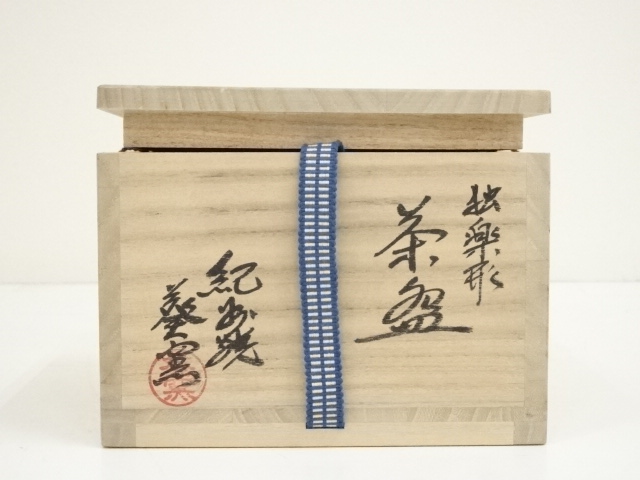 独楽形
茶盌
紀州焼
葵窯